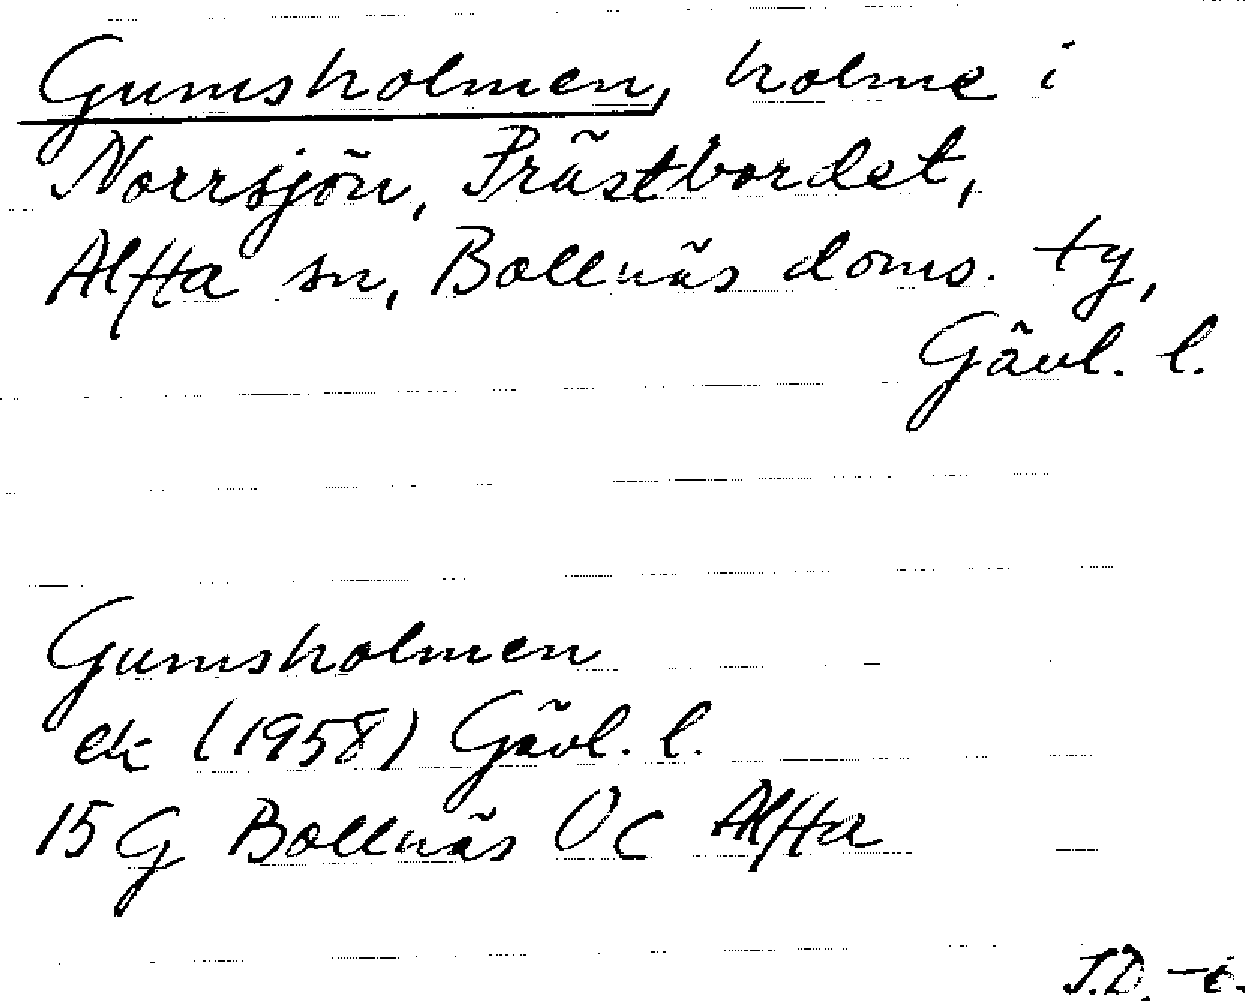 Gumsholmen, holme i
Norrsjön, Prästbordet,
Alfta sn, Bollnäs doms. ty,
Gävl. l.
Gumsholmen
ek (1958) Gävl. l.
15 G Bollnäs Oc Alfta